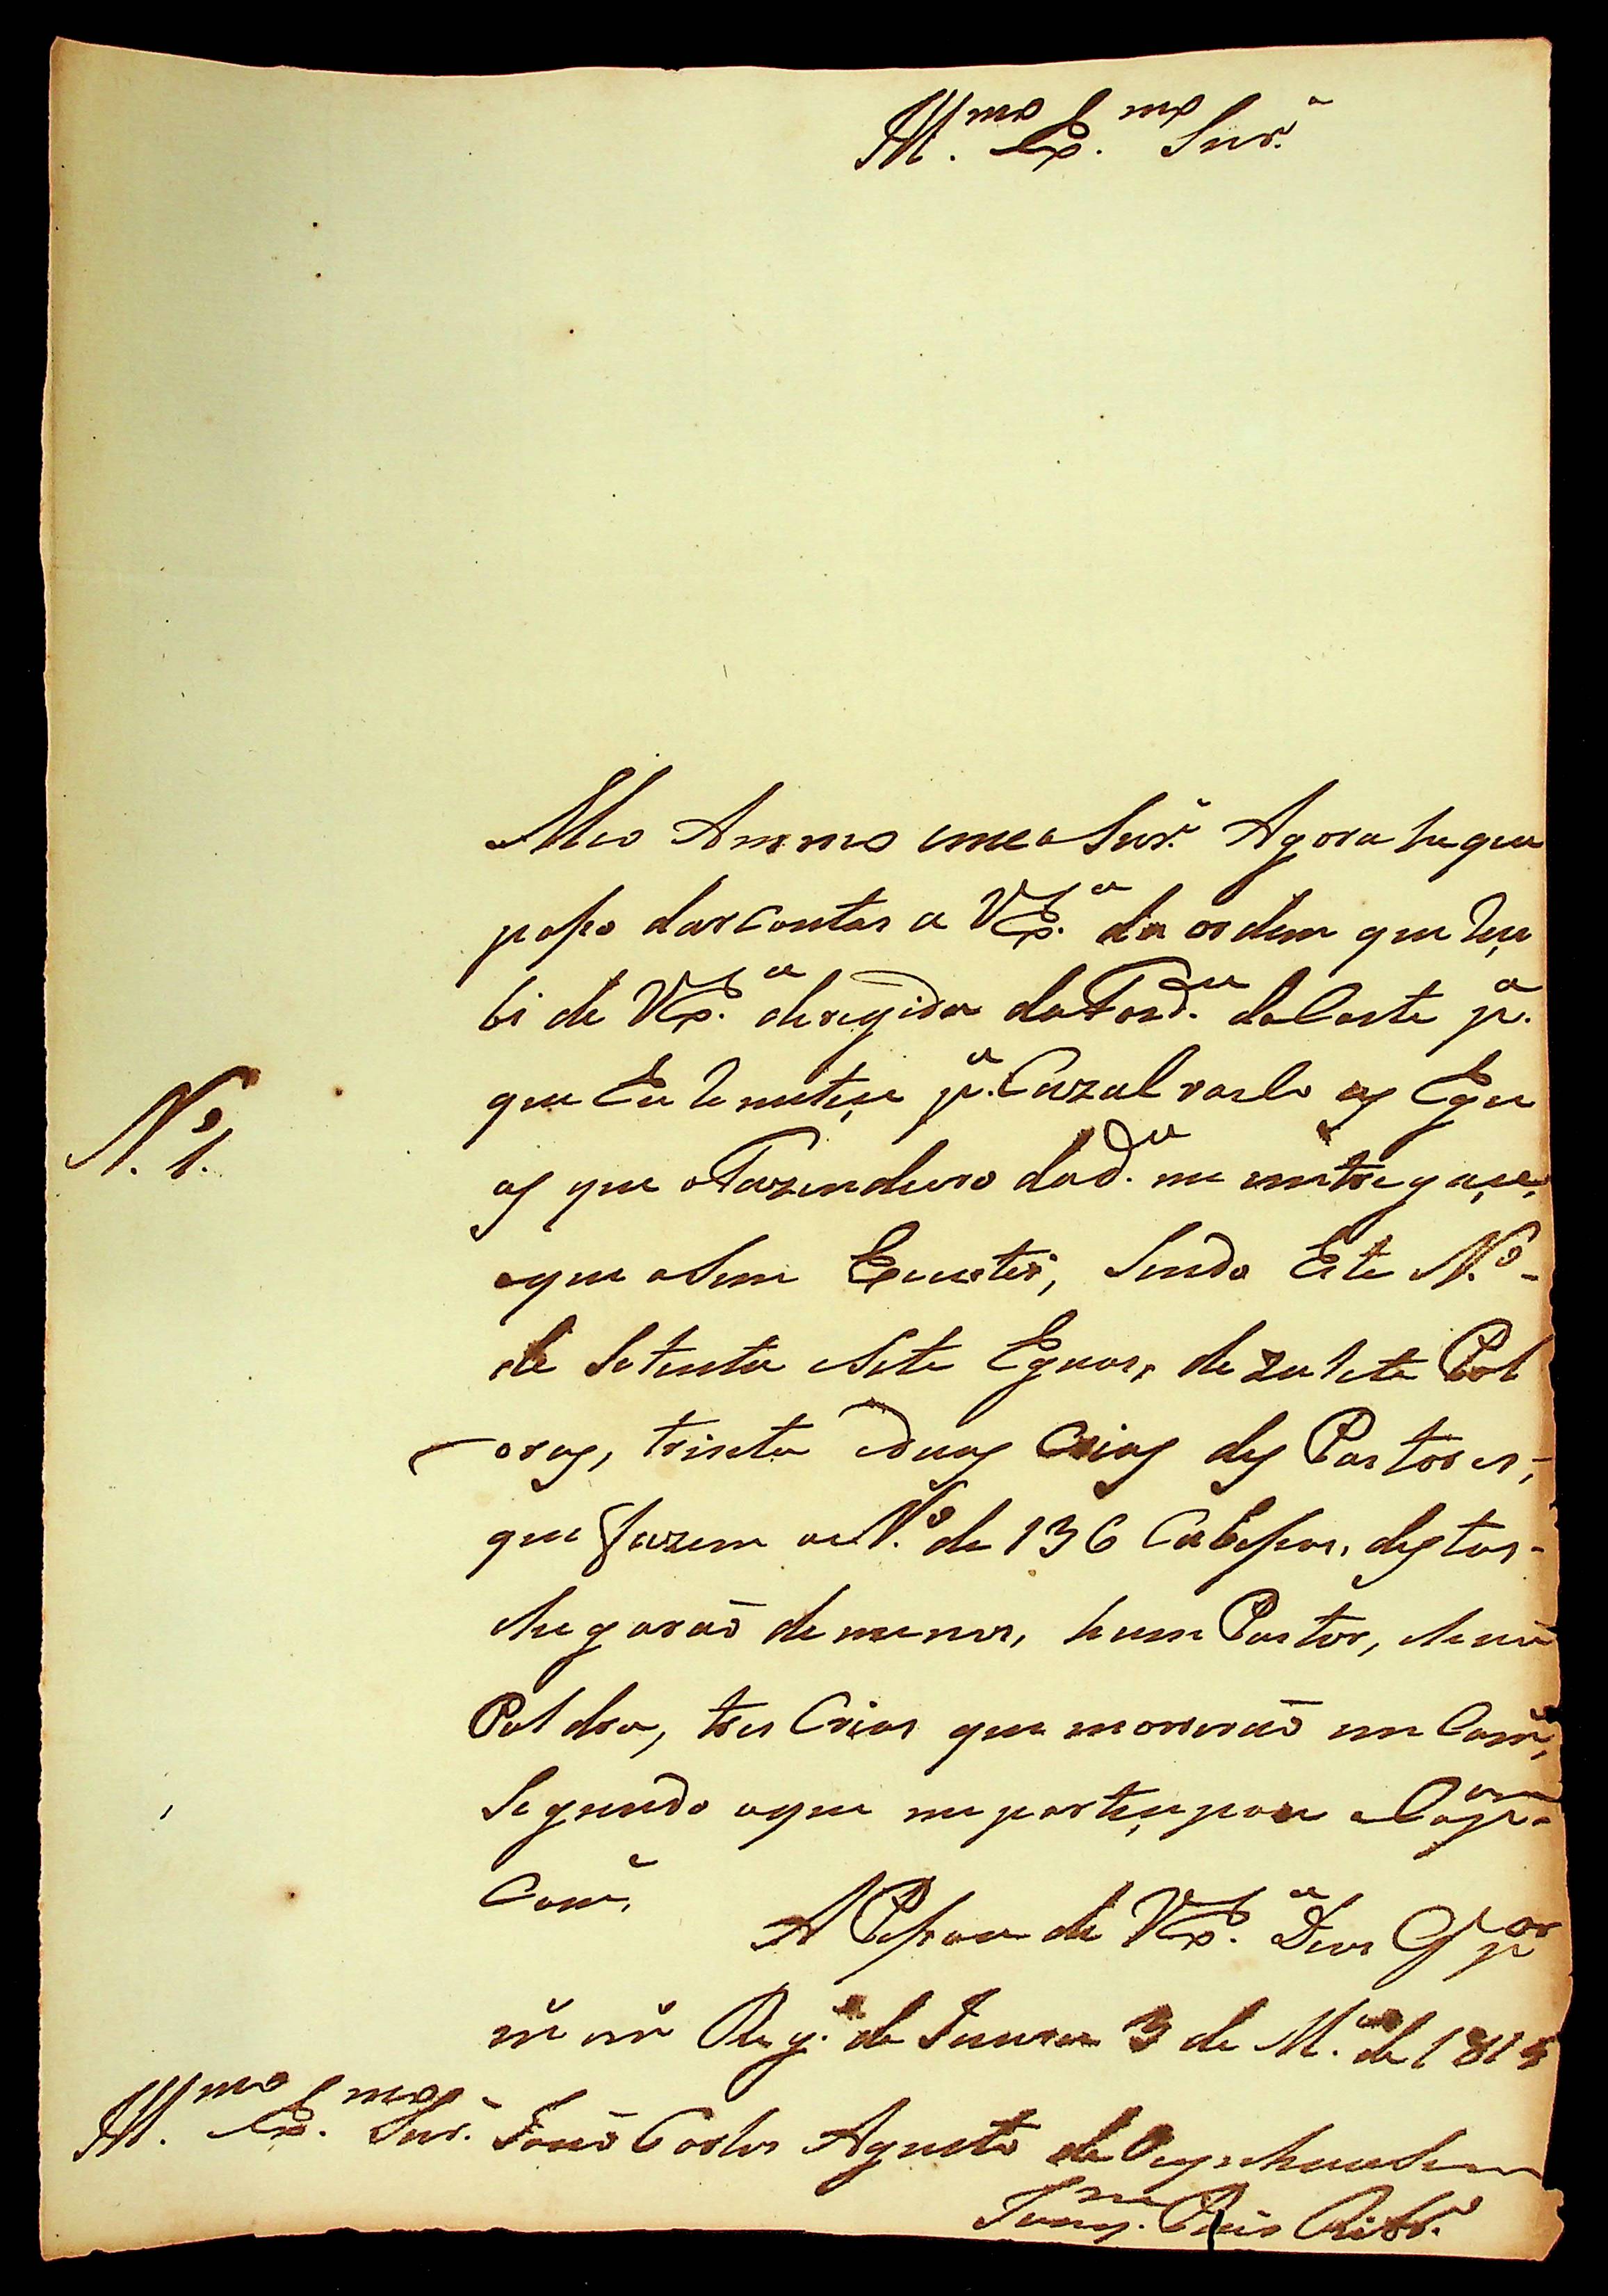 Ill.mo Ex.mo Snr.
Meo Ammo emea Snr. Agora he que
poso dar contas a V Ex.a da ordem que Reçe
bi de V Ex.a deregida da Fazd.a daCaste p.a
que Eu Remeteçe p.a Cazalvaslo as Egu
N.o 1.
as que oFazendeiro da d.a me emtregaçe,
oque asim Executei, sendo Este N.o -
de Setenta eSete Eguas, de zasete Pol
dras, trinta eduas Crias des Pastores,
que fazem o N.o de 136 Cabesas, destas -
chegarão demenos, hum Pastor, huã
Poldra, tres Crias que morerão no Cam.o,
Segundo oque me parteçipou oCap.am
Com.e
A Pesoa de V Ex.a Deos G.e por
m. an. Reg.o de Jauru 3 de M.co de 1815
Ill.mo Ex.mo Snr. João Carlos Agusto de Oeynhausen
Joaq.m Pais Ribr.o